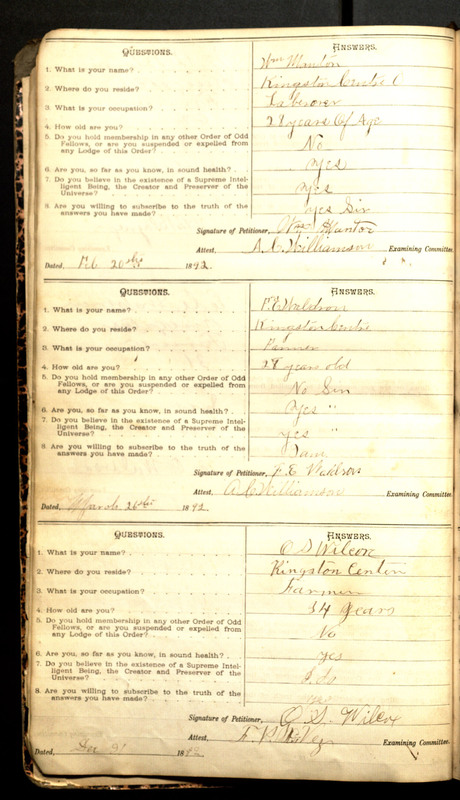 QUESTIONS. ANSWERS.
1. What is your name? Wm Manton
2. Where do you reside? Kingston Centre
3. What is your occupation? Laborer
4. How old are you? 29 years Of Age
5. Do you hold membership in any other Order of Odd
Fellows, or are you suspended or expelled from
any Lodge of this Order? No
6. Are you, so far as you know, in sound health? yes
7. Do you believe in the existence of a Supreme Intel-
ligent Being, the Creator and Preserver of the
Universe? yes
8. Are you willing to subscribe to the truth of the
answers you have made? yes Sir
Signature of Petitioner, Wm Manton
Attest, A. C. Williamson Examining Committee.
Dated, Feb 20th 1892.
QUESTIONS. ANSWERS.
1. What is your name? F. E. Waldron
2. Where do you reside? Kingston Centre
3. What is your occupation? Farmer
4. How old are you? 28 years old
5. Do you hold membership in any other Order of Odd
Fellows, or are you suspended or expelled from
any Lodge of this Order? No Sir
6. Are you, so far as you know, in sound health? yes "
7. Do you believe in the existence of a Supreme Intel-
ligent Being, the Creator and Preserver of the
Universe? yes "
8. Are you willing to subscribe to the truth of the
answers you have made? I am
Signature of Petitioner, F. E. Waldron
Attest, A. C. Williamson Examining Committee
Dated, March 26th 1892.
QUESTIONS. ANSWERS.
1. What is your name? O S Wilcox
2. Where do you reside? Kingston Center
3. What is your occupation? Farmer
4. How old are you? 34 years
5. Do you hold membership in any other Order of Odd
Fellows, or are you suspended or expelled from
any Lodge of this Order? No
6. Are you, so far as you know, in sound health? yes
7. Do you believe in the existence of a Supreme Intel-
ligent Being, the Creator and Preserver of the
Universe? I do
8. Are you willing to subscribe to the truth of the
answers you have made?
Signature of Petitioner, O. S. Wilcox
Attest, Examining Committee.
Dated, 1892